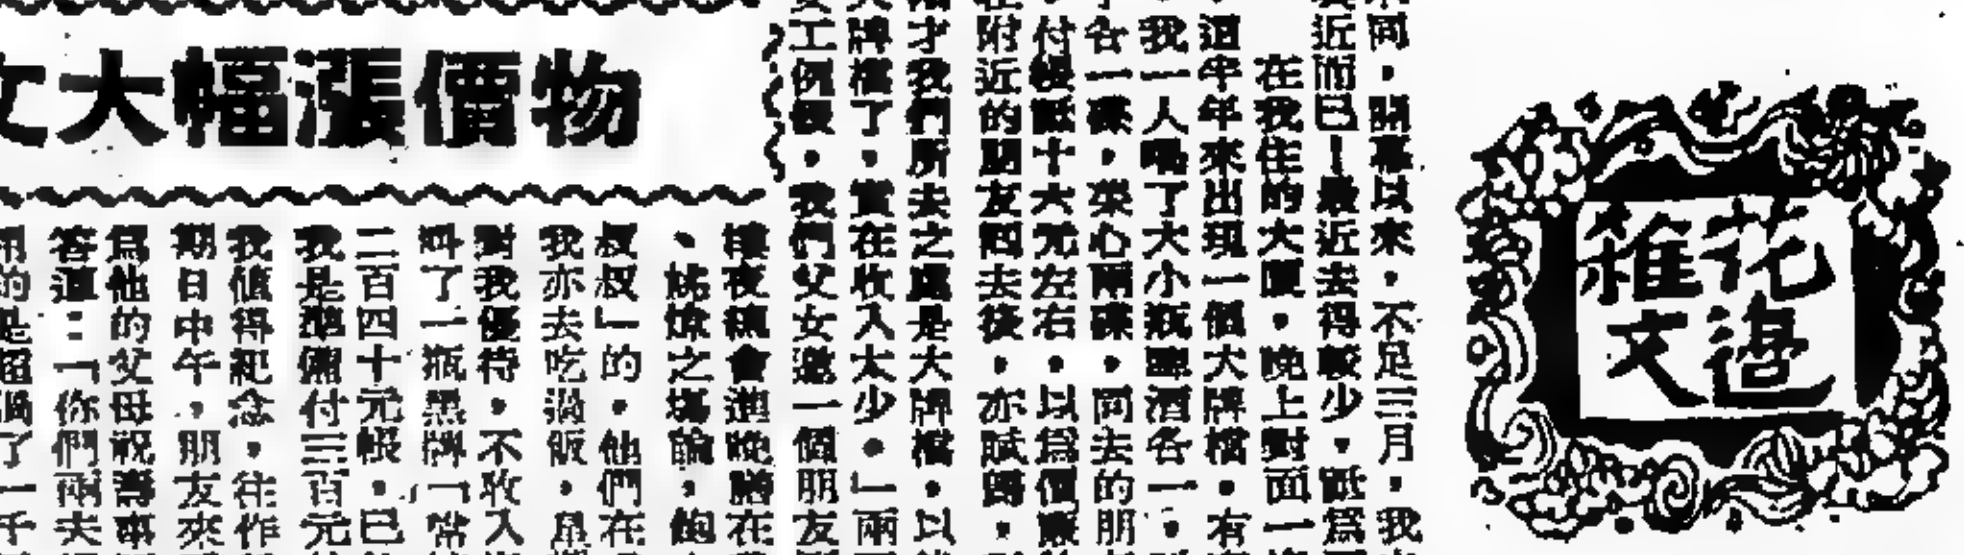 花邊
雜文
物價漲幅大文
同,開幕以來,不足三月,我
近而已!最近去得較少,祗爲
在我住的大廈,晚上對面一
這半年來出現一個大牌檔,有
我一人喝了大小瓶啤酒各一,
各一碟,菜心兩碟,同去的朋
付錢祗十六元左右,以爲個廠
附近的朋友回去後,亦賦歸,
才我們所去之處是大牌檔,以
牌檔了,實在收入太少,」兩
工例假,我們父女邀一個朋友
樓夜總會進晚膳在
、姊嫂之場館,
叔叔」的,他們在
我亦去吃過飯,
對我優待,不收入
叫了一瓶黑牌「
二百四十元帳,已
我是準備付三百元
我值得紀念,往作
期日中午,朋友來
爲他的父母祝壽事
答道:「你們兩夫
的是超過了一千